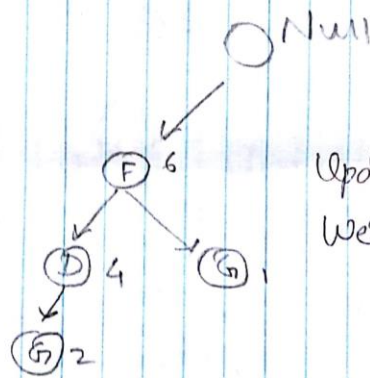 Null
F 6
Upd
We
D 4
G 1
G 2